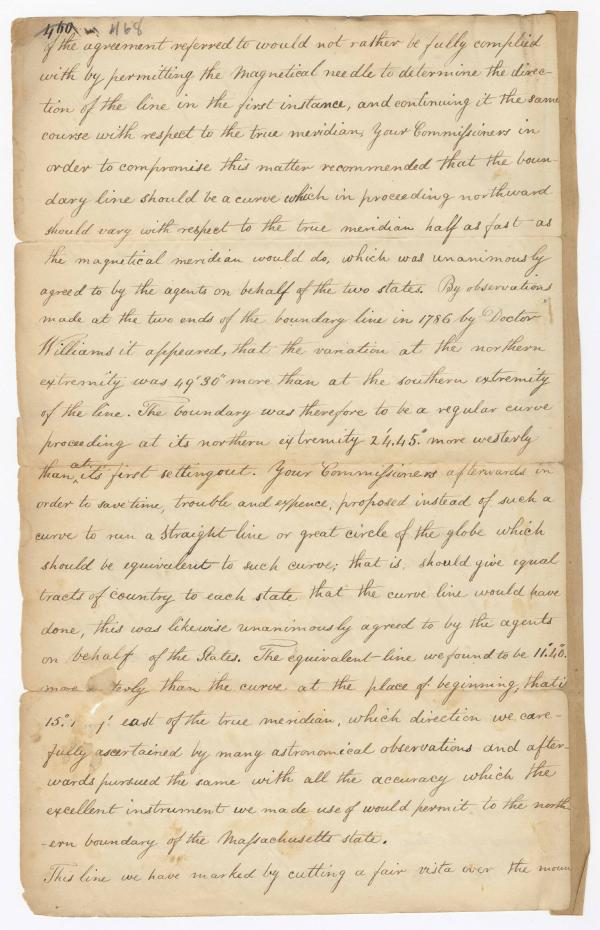 460 1168
of the agreement referred to would not rather be fully complied
with by permitting the Magnetical needle to determine the direc-
tion of the line in the first instance, and continuing it the same
course with respect to the true meridian, Your Commissioners in
order to compromise this matter recommended that the boun-
dary line should be a curve which in proceeding northward
should vary with respect to the true meridian half as fast as
the magnetical meridian would do, which was unanimously
agreed to by the agents on behalf of the two states. By observations
made at the two ends of the boundary line in 1786 by Doctor
Williams it appeared, that the variation at the northern
extremity was 49' 30" more than at the southern extremity
of the line. The boundary was therefore to be a regular curve
proceeding at its northern extremity 24'.45" more westerly
than at its first setting out. Your Commissioners afterwards in
order to save time, trouble and expence, proposed instead of such a
curve to run a straight line or great circle of the globe which
should be equivalent to such curve; that is, should give equal
tracts of country to each state that the curve line would have
done, this was likewise unanimously agreed to by the agents
on behalf of the States. The equivalent line we found to be
more than the curve at the place of beginning, that i
15°. east of the true meridian, which direction we care-
fully ascertained by many astronomical observations and after-
wards pursued the same with all the accuracy which the
excellent instrument we made use of would permit to the north
-ern boundary of the Massachusetts state.
This line we have marked by cutting a fair vista over the moun